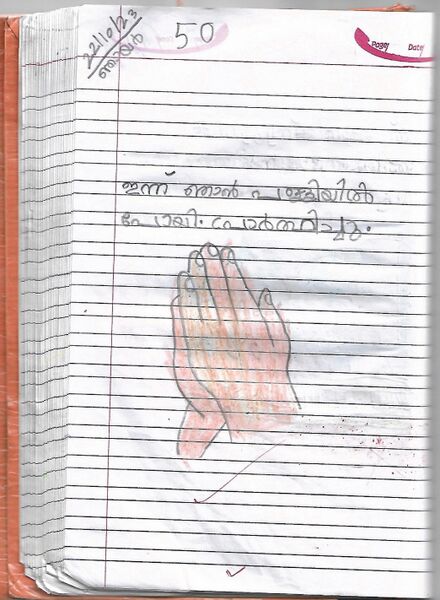 22/10/23
ഞായർ
50
Page
Date
ഇന്ന് ഞാൻ പള്ളിയിൽ
പോയി. പ്രാർത്ഥിച്ചു.